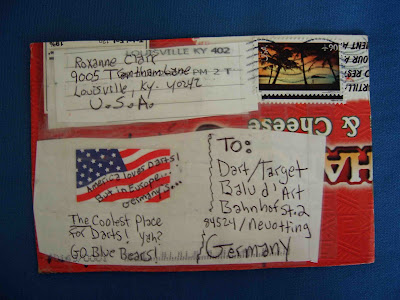 LOUISVILLE KY 402
PM 2 T
Roxanne Clark
9005 Trentham Lane
Louisville, KY. 40242
U.S.A.
+90
& Cheese
HA
America loves Darts!
But in Europe...
Germany's...
The Coolest Place
for Darts! Yah?
GO Blue Bears!
To:
Dart/Target
Balu d'Art
Bahnhofst. 2
84524/Neuötting
Germany